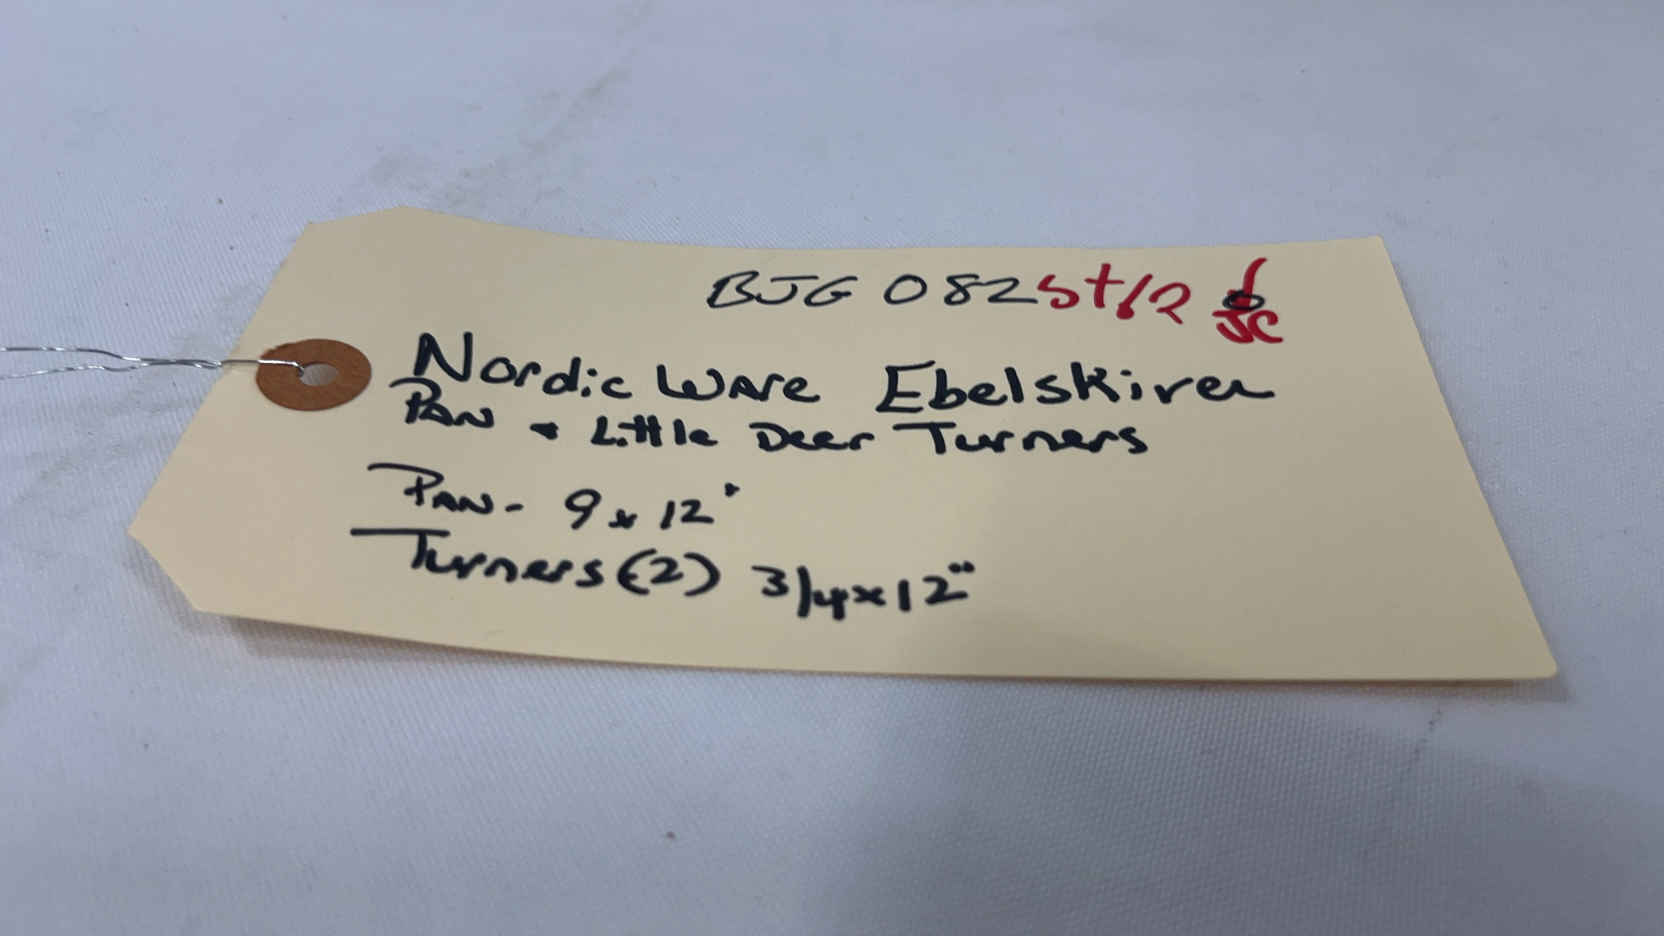 BJG 082 st/2 JC
Nordic Ware Ebelskiver
Pan & Little Deer Turners
Pan - 9 x 12"
Turners (2) 3/4 x 12"